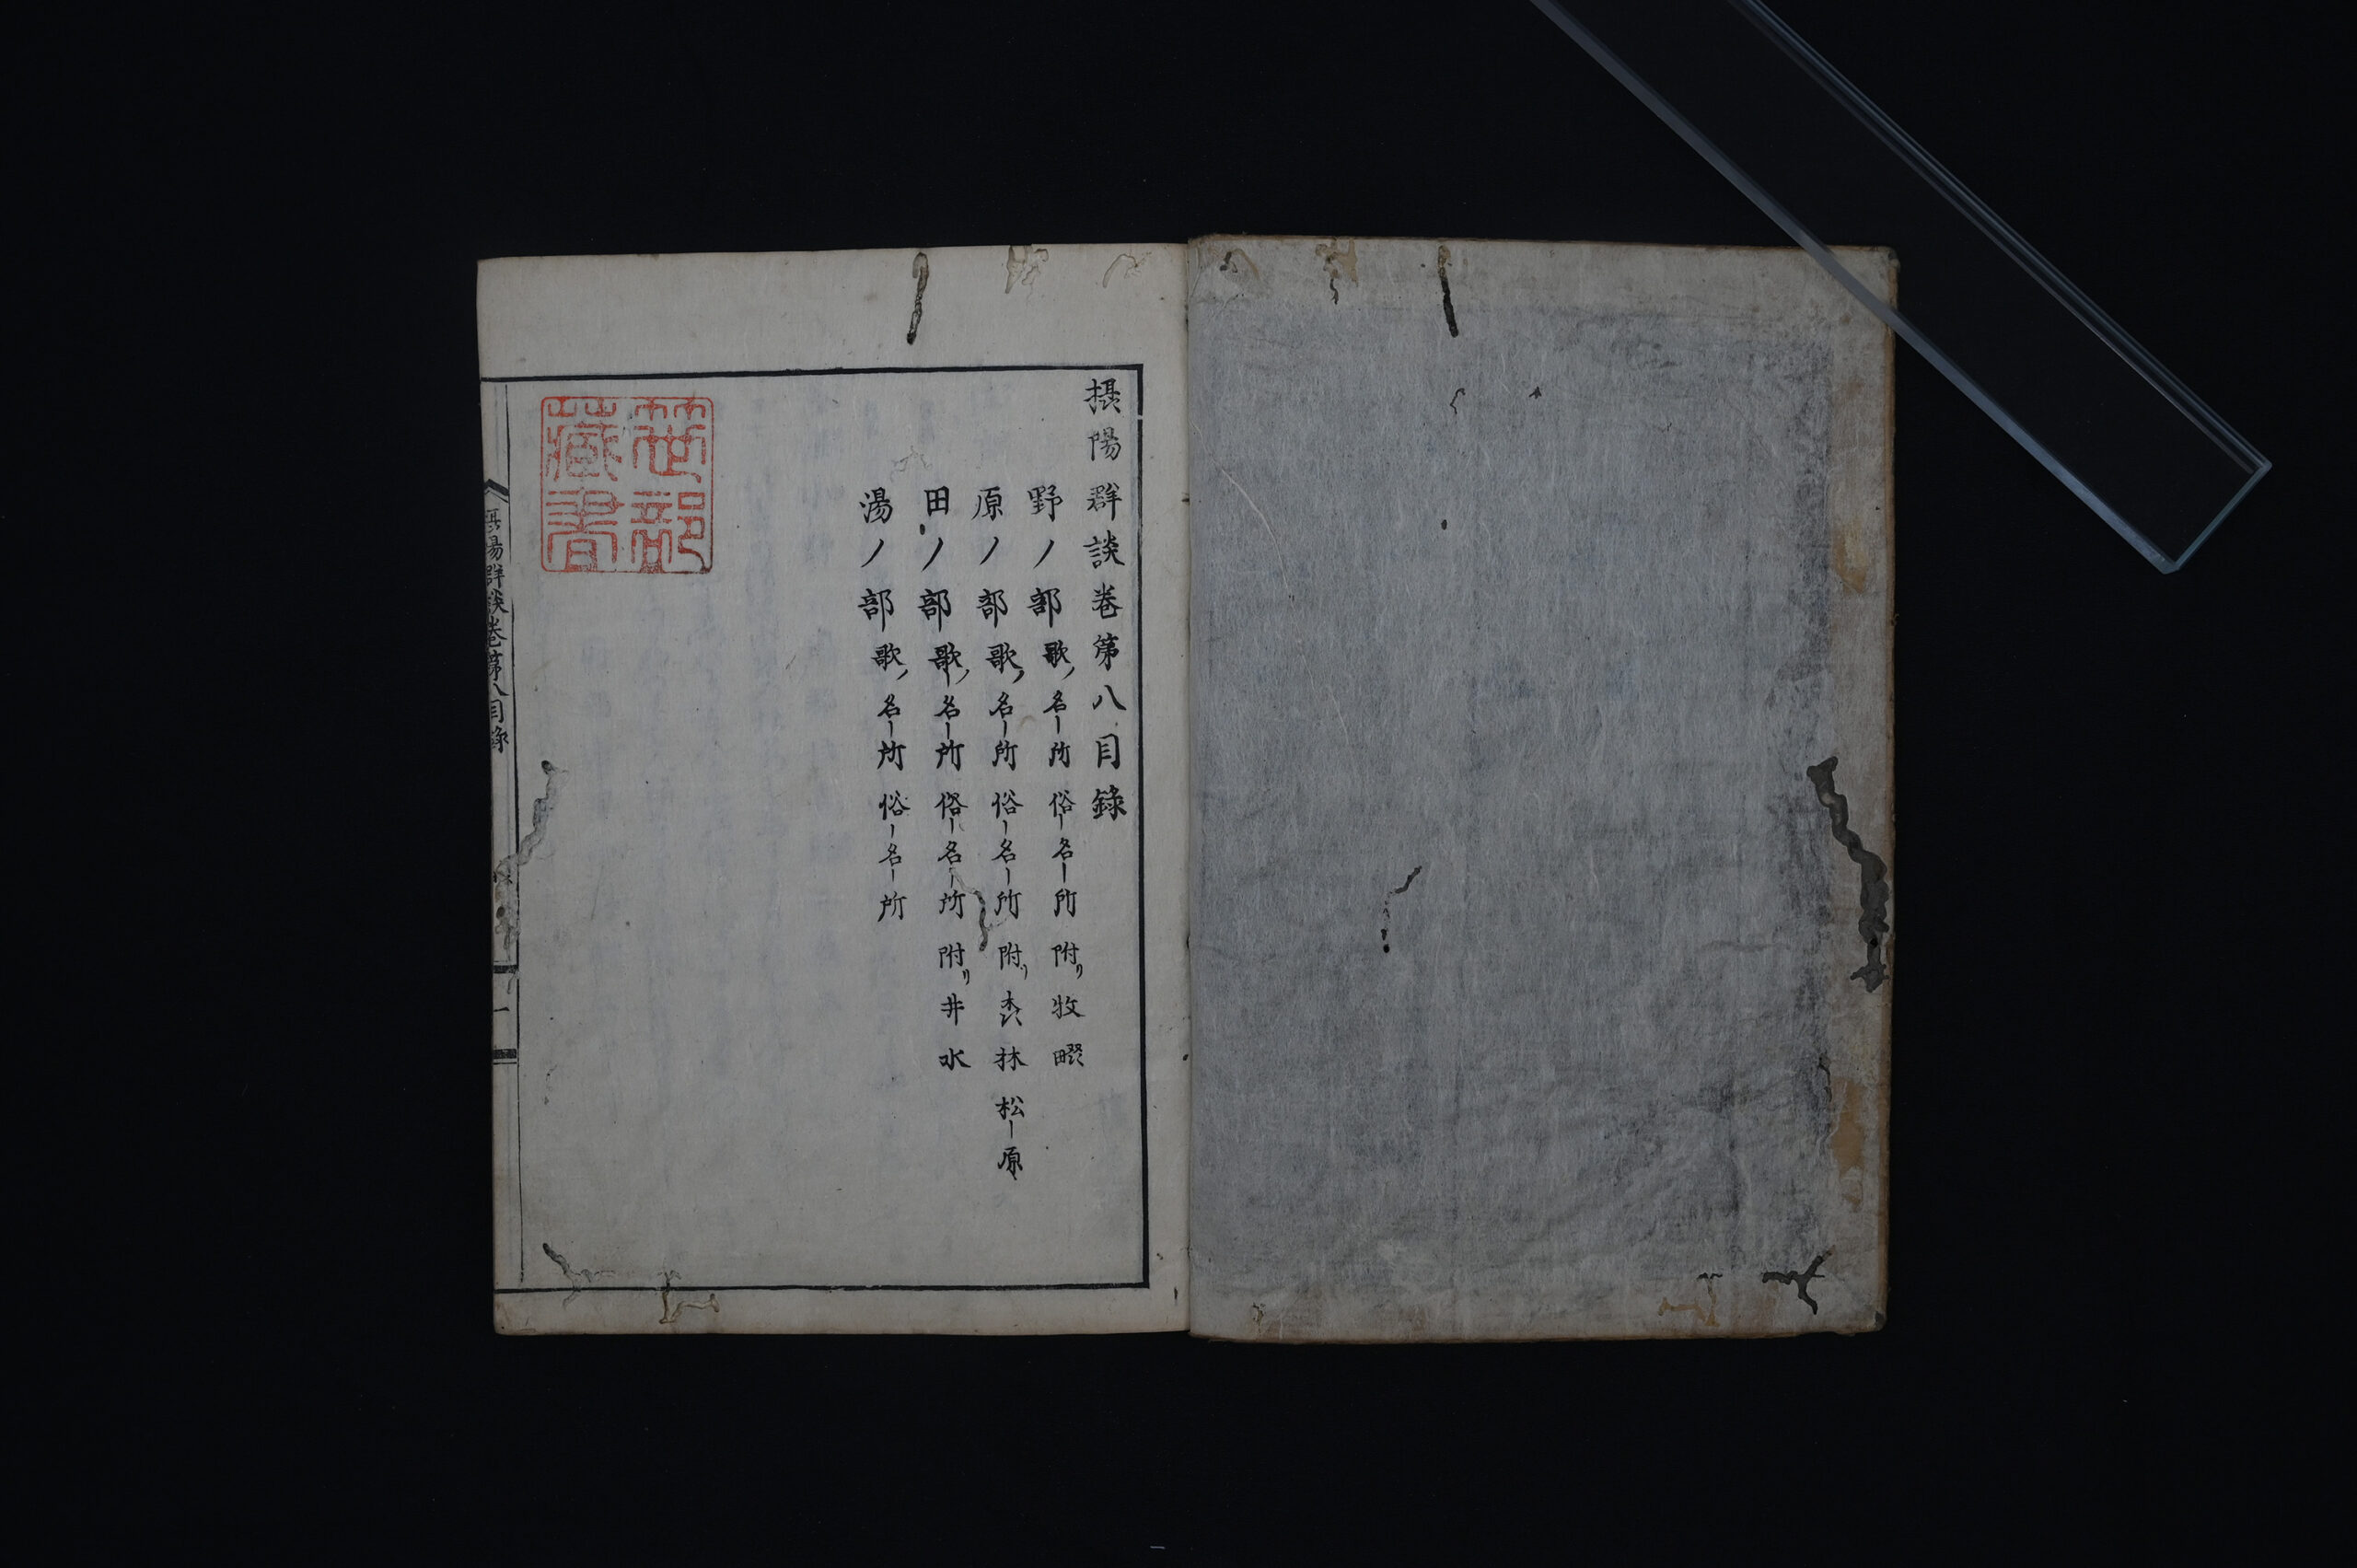 摂陽群談巻第八目録
野ノ部歌ノ名所俗名所附リ牧畷
原ノ部歌ノ名所俗名所附リ森林松原
田ノ部歌ノ名所俗名所附リ井水
湯ノ部歌ノ名所俗名所
藏書
摂陽群談巻第八目録
一